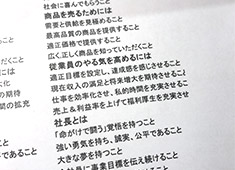 社会に喜んでもらうこと
商品を売るためには
需要と供給を見極めること
最高品質の商品を提供すること
適正価格で提供すること
広く、正しく商品を知っていただくこと
従業員のやる気を高めるには
適正目標を設定し、達成感を感じさせること
現在収入の満足と将来増大を期待させること
仕事を効率化させ、私的時間を充実させること
売上&利益率を上げて福利厚生を充実させ
社長とは
「命がけで闘う」覚悟を持つこと
強い勇気を持ち、誠実、公平であること
大きな夢を持つこと
全社員に事業目標を伝え続けること
こと
化
の期待
間の拡充
であること
こと